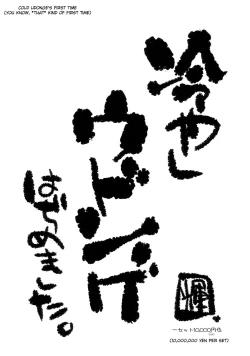 COLD UDONGE'S FIRST TIME
(YOU KNOW, *THAT* KIND OF FIRST TIME)
冷やし
ウドンゲ
はぢめました。
(10,000,000 YEN PER SET)